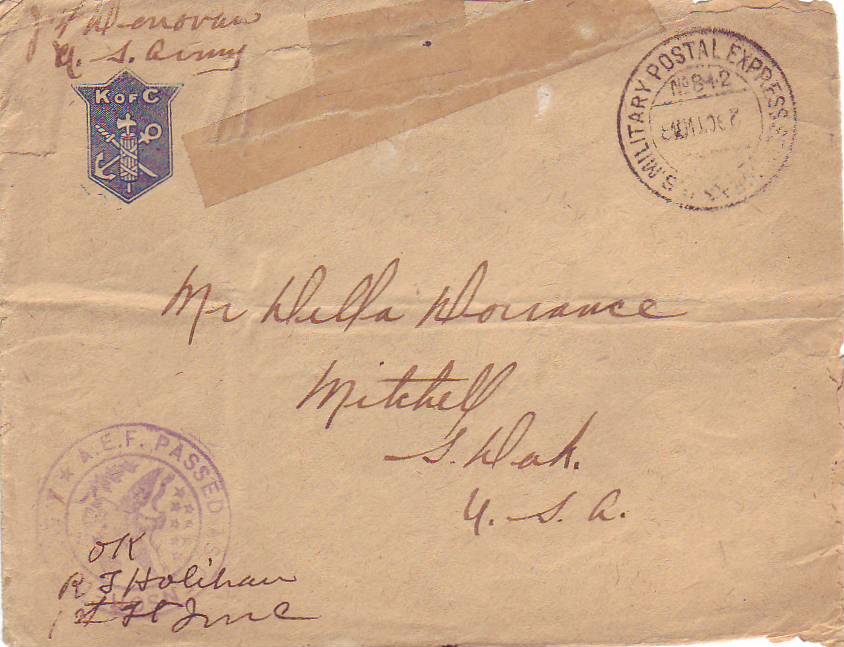 Donovan
U. S. Army
K OF C
U.S. MILITARY POSTAL EXPRESS
No 842
Mr Della Dorrance
Mitchell
S. Dak.
U. S. A.
A.E.F. PASSED AS
OK
R J Holihan
1st Lt